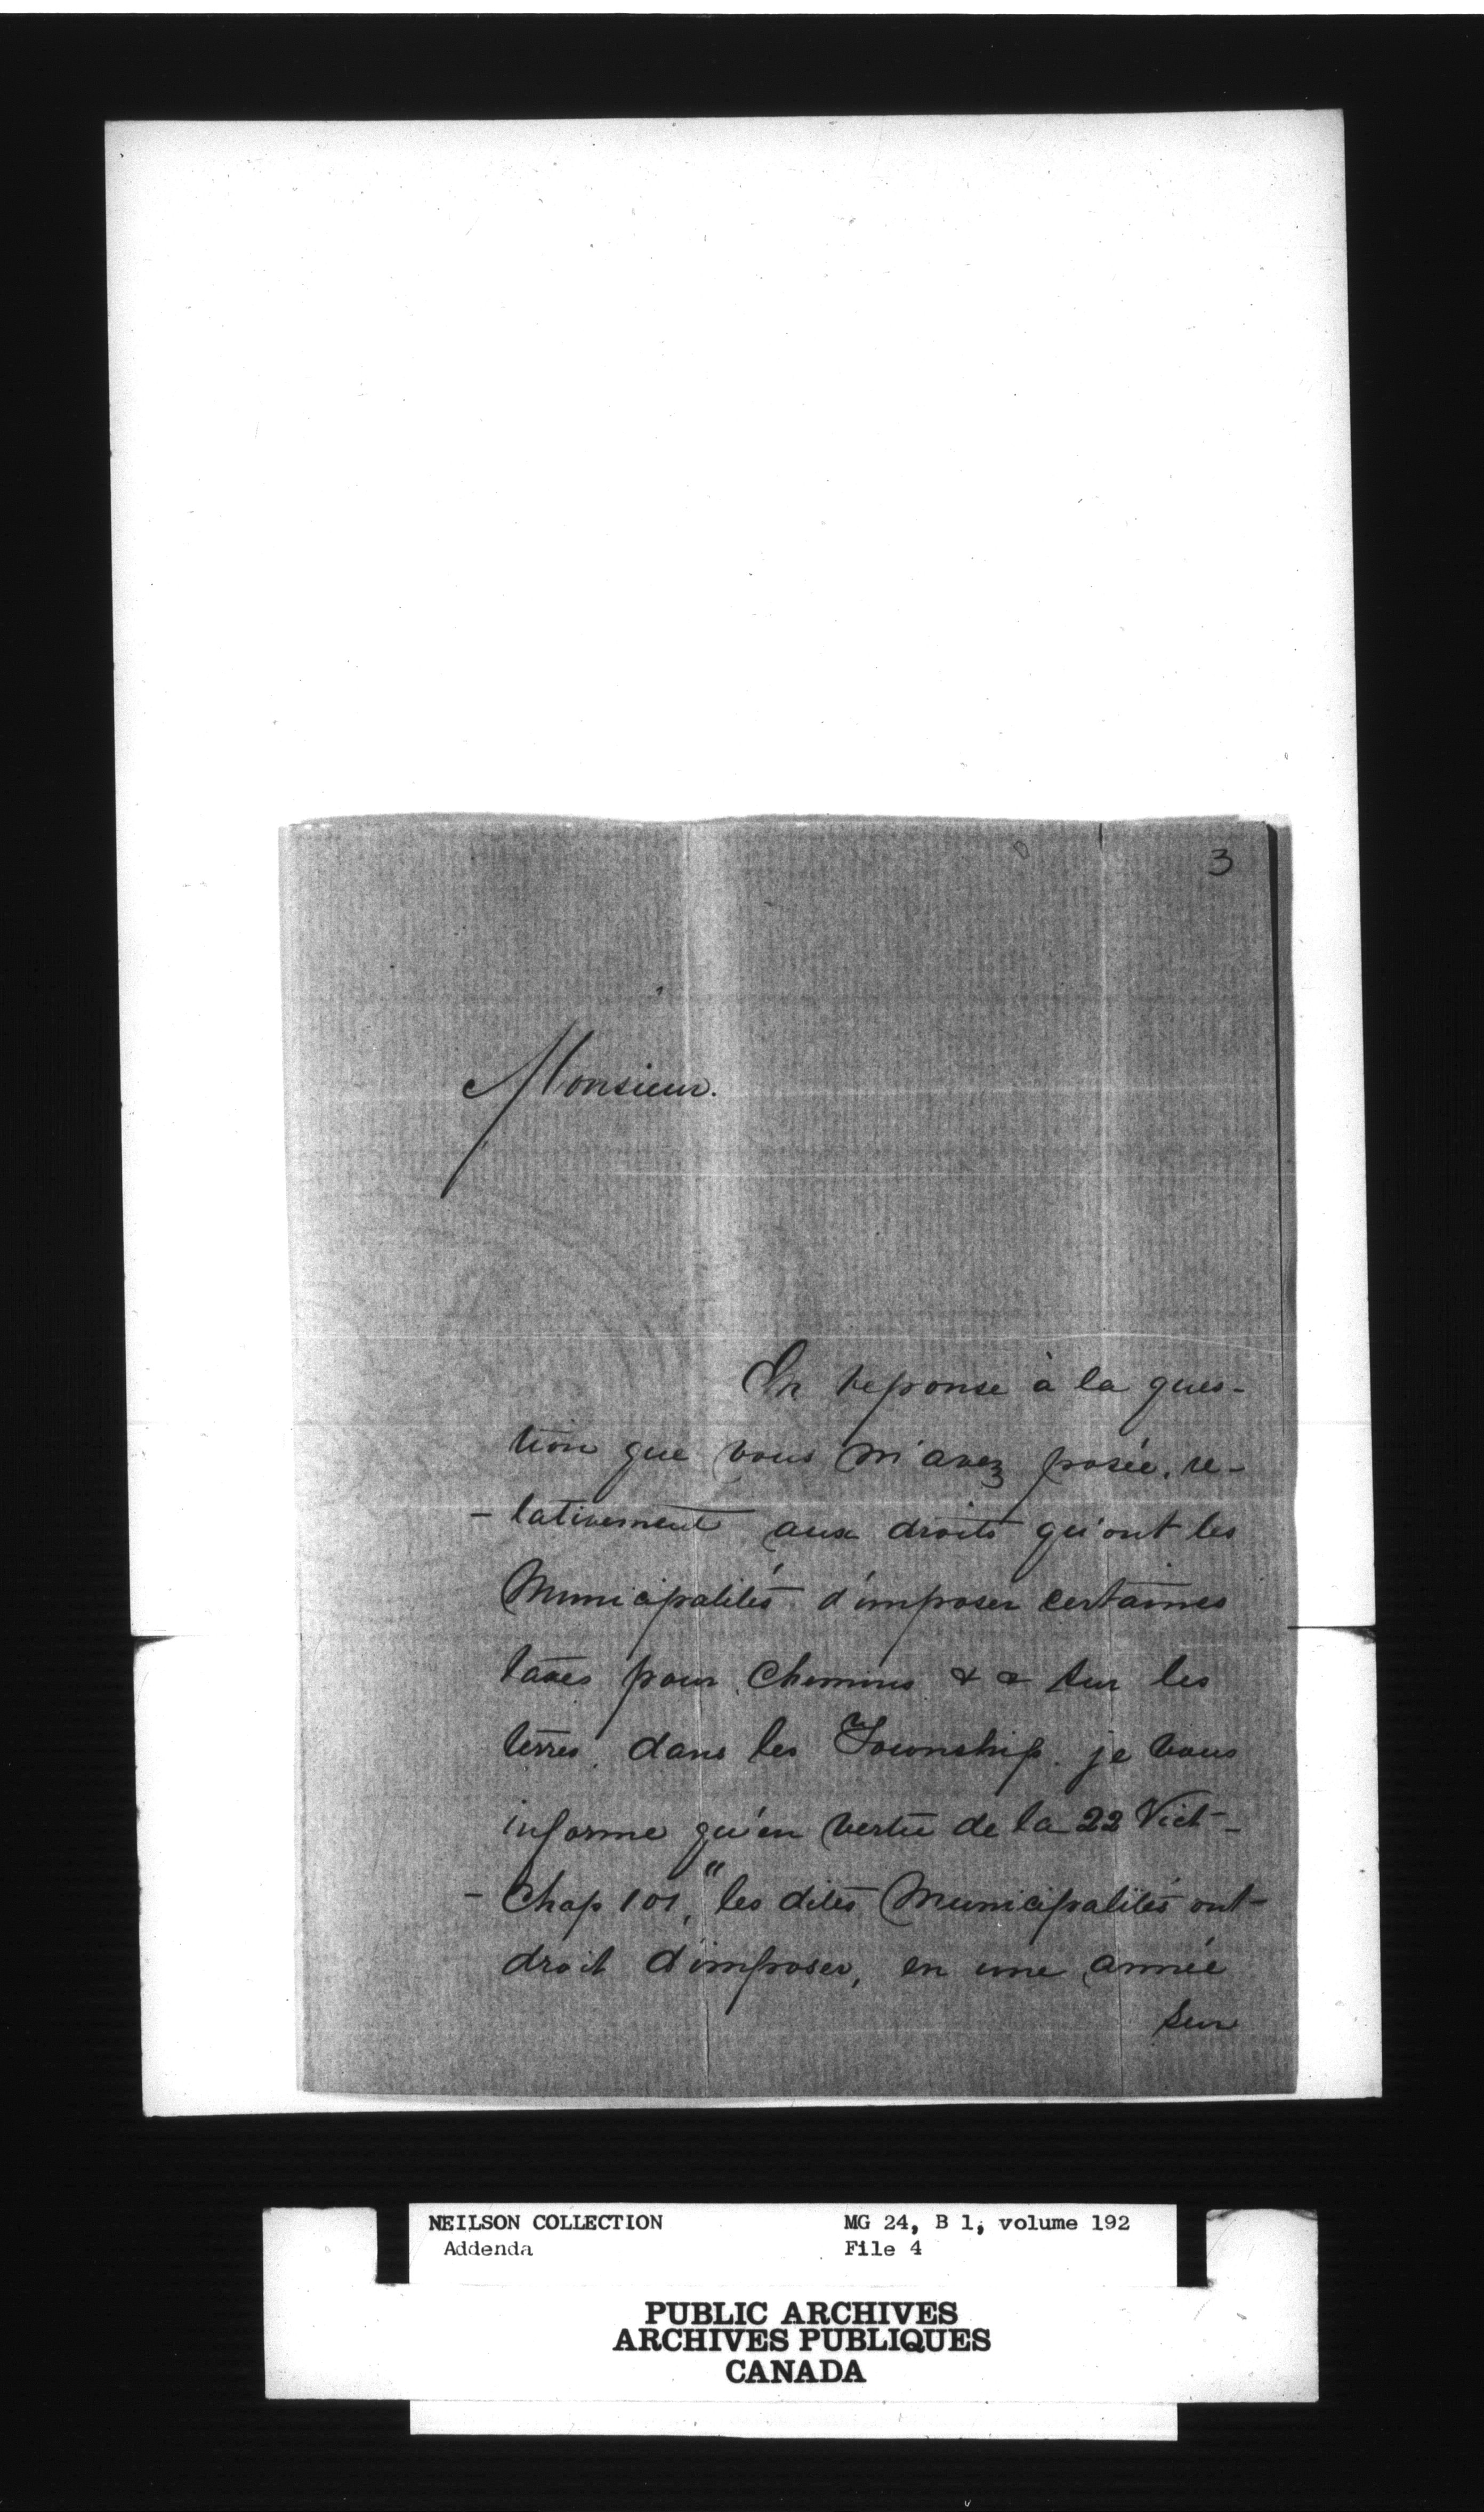 3
Monsieur.
En reponse à la ques-
tion que vous m'avez posée, re-
- lativement aux droits qu'ont les
Municipalités d'imposer certaines
taxes pour Chemins & & sur les
terres, dans les Township. je vous
informe qu'en vertu de la 22 Vict-
- Chap 101, " les dites Municipalités ont
droit d'imposer, en une année
sur
NEILSON COLLECTION MG 24, B 1, volume 192
Addenda File 4
PUBLIC ARCHIVES
ARCHIVES PUBLIQUES
CANADA